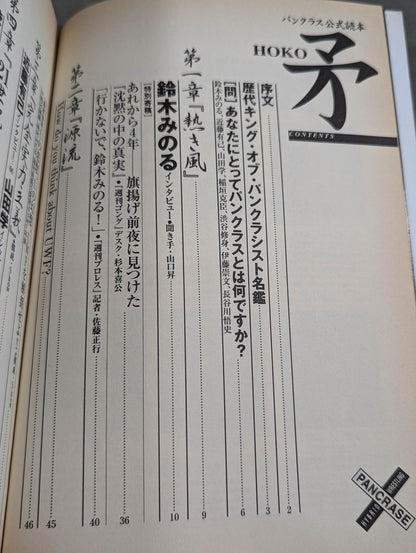 パンクラス公式読本
矛
HOKO
CONTENTS
序文 2
歴代キング・オブ・パンクラシスト名鑑 3
[問]あなたにとってパンクラスとは何ですか? 6
鈴木みのる、近藤有己、山田学、稲垣克臣、渋谷修身、伊藤崇文、長谷川悟史
第一章『熱き風』 9
鈴木みのる インタビュー●聞き手・山口昇 10
[特別寄稿]
あれから4年 旗揚げ前夜に見つけた
『沈黙の中の真実』●『週刊ゴング』デスク・杉本喜公 36
「行かないで、鈴木みのる!」●『週刊プロレス』記者・佐藤正行 40
第二章『源流』 45
How do you think about UWF? 46
PANCRASE
HYBRID WRESTLING